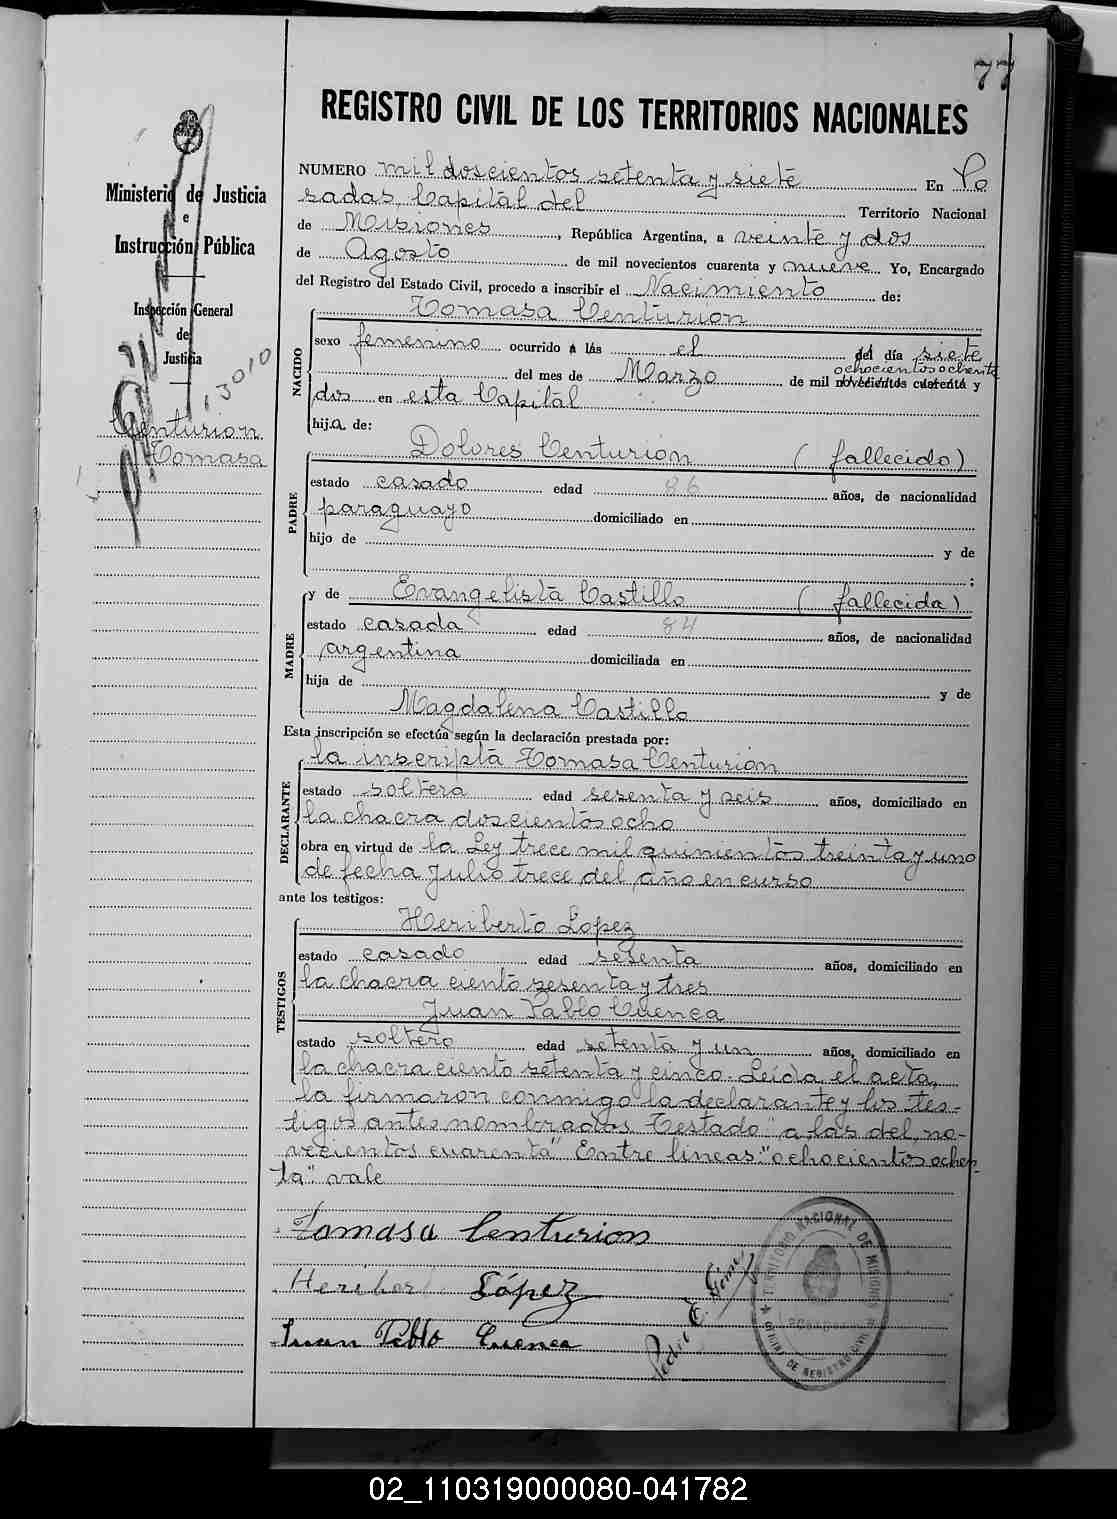 77
REGISTRO CIVIL DE LOS TERRITORIOS NACIONALES
Ministerio de Justicia
e
Instrucción Pública
Inspección General
de
Justicia
Centurion
Tomasa
NUMERO mil doscientos setenta y siete En Po
sadas, Capital del Territorio Nacional
de Misiones, República Argentina, a veinte y dos
de Agosto de mil novecientos cuarenta y nueve Yo, Encargado
del Registro del Estado Civil, procedo a inscribir el Nacimiento de:
NACIDO
Tomasa Centurion
sexo femenino ocurrido a las el del día siete
ochocientos ochenta
del mes de Marzo de mil novecientos cuarenta y
dos en esta Capital
hija de:
PADRE
Dolores Centurion (fallecido)
estado casado edad 86 años, de nacionalidad
paraguayo domiciliado en
hijo de y de
;
MADRE
y de Evangelista Castillo (fallecida)
estado casada edad 84 años, de nacionalidad
argentina domiciliada en
hija de y de
Magdalena Castillo
Esta inscripción se efectúa según la declaración prestada por:
DECLARANTE
la inscripta Tomasa Centurion
estado soltera edad sesenta y seis años, domiciliado en
la chacra doscientos ocho
obra en virtud de la Ley trece mil quinientos treinta y uno
de fecha Julio trece del año en curso
ante los testigos:
TESTIGOS
Heriberto Lopez
estado casado edad sesenta años, domiciliado en
la chacra ciento sesenta y tres
Juan Pablo Cuenca
estado soltero edad setenta y un años, domiciliado en
la chacra ciento setenta y cinco. Leída el acta,
la firmaron conmigo la declarante y los tes-
tigos antes nombrados. Testado "a las del no-
vecientos cuarenta" Entre lineas: "ochocientos ochen
ta" vale
Tomasa Centurion
Heriber López
Juan Pablo Cuenca
Pedro E. Gome
TERRITORIO NACIONAL DE MISIONES
02_110319000080-041782